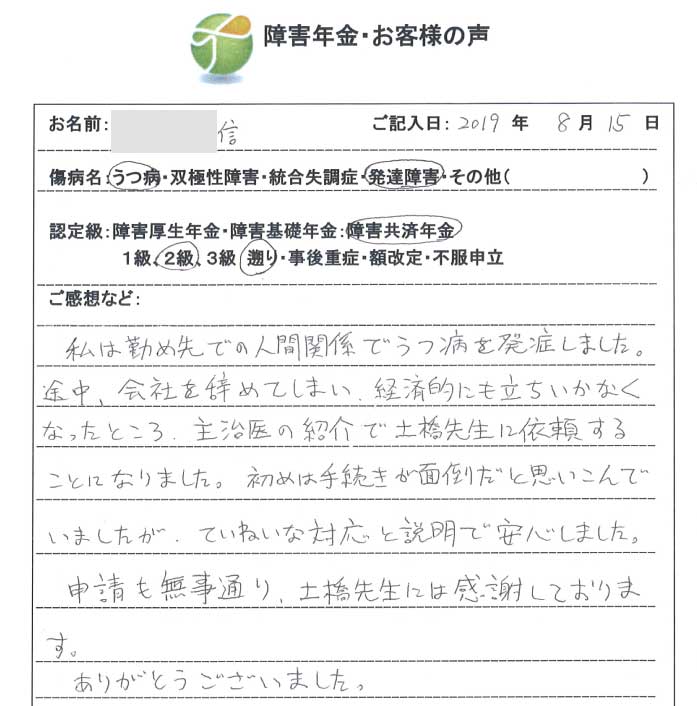 障害年金・お客様の声
お名前: 信 ご記入日: 2019 年 8 月 15 日
傷病名:うつ病・双極性障害・統合失調症・発達障害・その他( )
認定級:障害厚生年金・障害基礎年金:障害共済年金
1級、2級、3級 遡り・事後重症・額改定・不服申立
ご感想など:
私は勤め先での人間関係でうつ病を発症しました。
途中、会社を辞めてしまい、経済的にも立ちいかなく
なったところ、主治医の紹介で土橋先生に依頼する
ことになりました。初めは手続きが面倒だと思いこんで
いましたが、ていねいな対応と説明で安心しました。
申請も無事通り、土橋先生には感謝しておりま
す。
ありがとうございました。